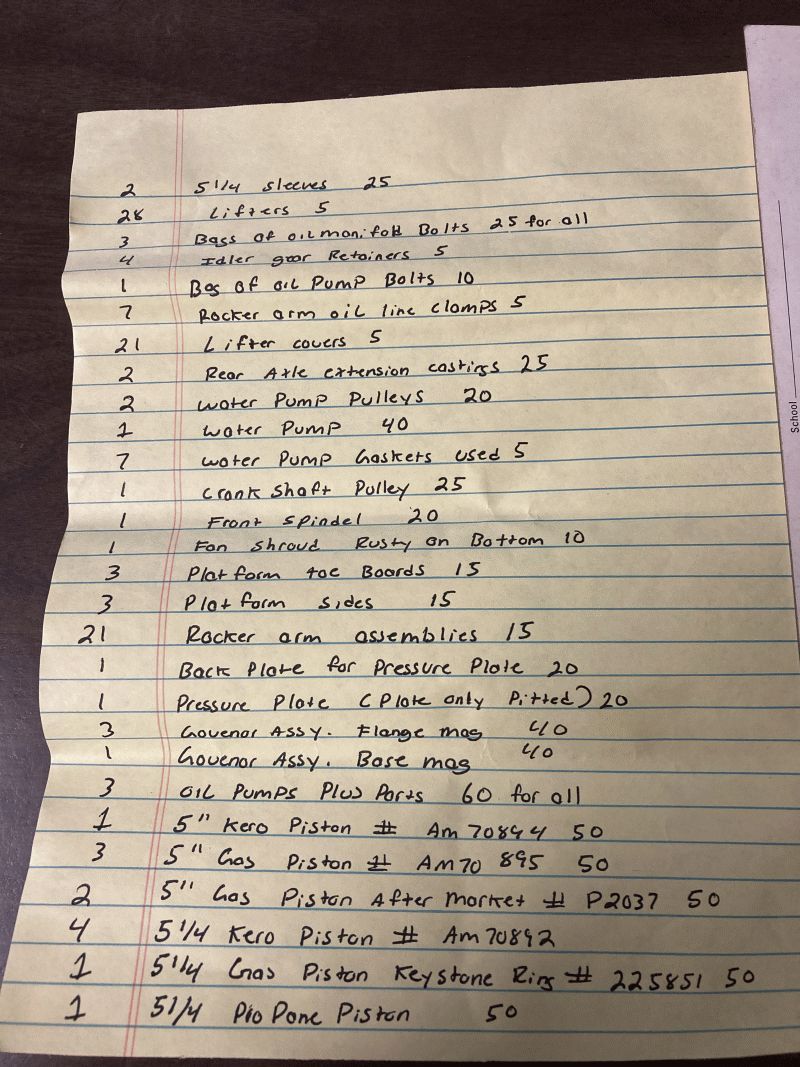 2 5 1/4 sleeves 25
28 Lifters 5
3 Bags of oil manifold Bolts 25 for all
4 Idler gear Retainers 5
1 Bag of oil Pump Bolts 10
7 Rocker arm oil line clamps 5
21 Lifter covers 5
2 Rear Axle extension castings 25
2 water Pump Pulleys 20
1 water Pump 40
7 water Pump Gaskets used 5
1 Crank Shaft Pulley 25
1 Front Spindel 20
1 Fan Shroud Rusty on Bottom 10
3 Platform toe Boards 15
3 Platform sides 15
21 Rocker arm assemblies 15
1 Back Plate for Pressure Plate 20
1 Pressure Plate (Plate only Pitted) 20
3 Govenor Assy. Flange mag 40
1 Govenor Assy. Base mag 40
3 OIL PUMPS Plus Parts 60 for all
1 5" Kero Piston # Am 70844 50
3 5" Gas Piston # AM70 895 50
2 5" Gas Piston After Market # P2037 50
4 5 1/4 Kero Piston # Am 70892
1 5 1/4 Gas Piston Keystone Ring # 225851 50
1 5 1/4 Pro Pane Piston 50
School